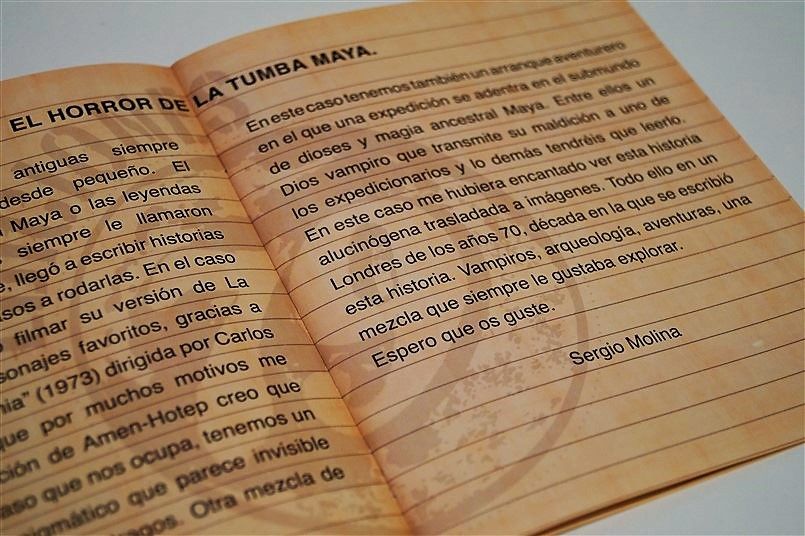 EL HORROR DE LA TUMBA MAYA.
antiguas siempre
desde pequeño. El
Maya o las leyendas
siempre le llamaron
llegó a escribir historias
a rodarlas. En el caso
filmar su versión de La
favoritos, gracias a
(1973) dirigida por Carlos
que por muchos motivos me
de Amen-Hotep creo que
que nos ocupa, tenemos un
que parece invisible
Otra mezcla de
En este caso tenemos también un arranque aventurero
en el que una expedición se adentra en el submundo
de dioses y magia ancestral Maya. Entre ellos un
Dios vampiro que transmite su maldición a uno de
los expedicionarios y lo demás tendréis que leerlo.
En este caso me hubiera encantado ver esta historia
alucinógena trasladada a imágenes. Todo ello en un
Londres de los años 70, década en la que se escribió
esta historia. Vampiros, arqueología, aventuras, una
mezcla que siempre le gustaba explorar.
Espero que os guste.
Sergio Molina